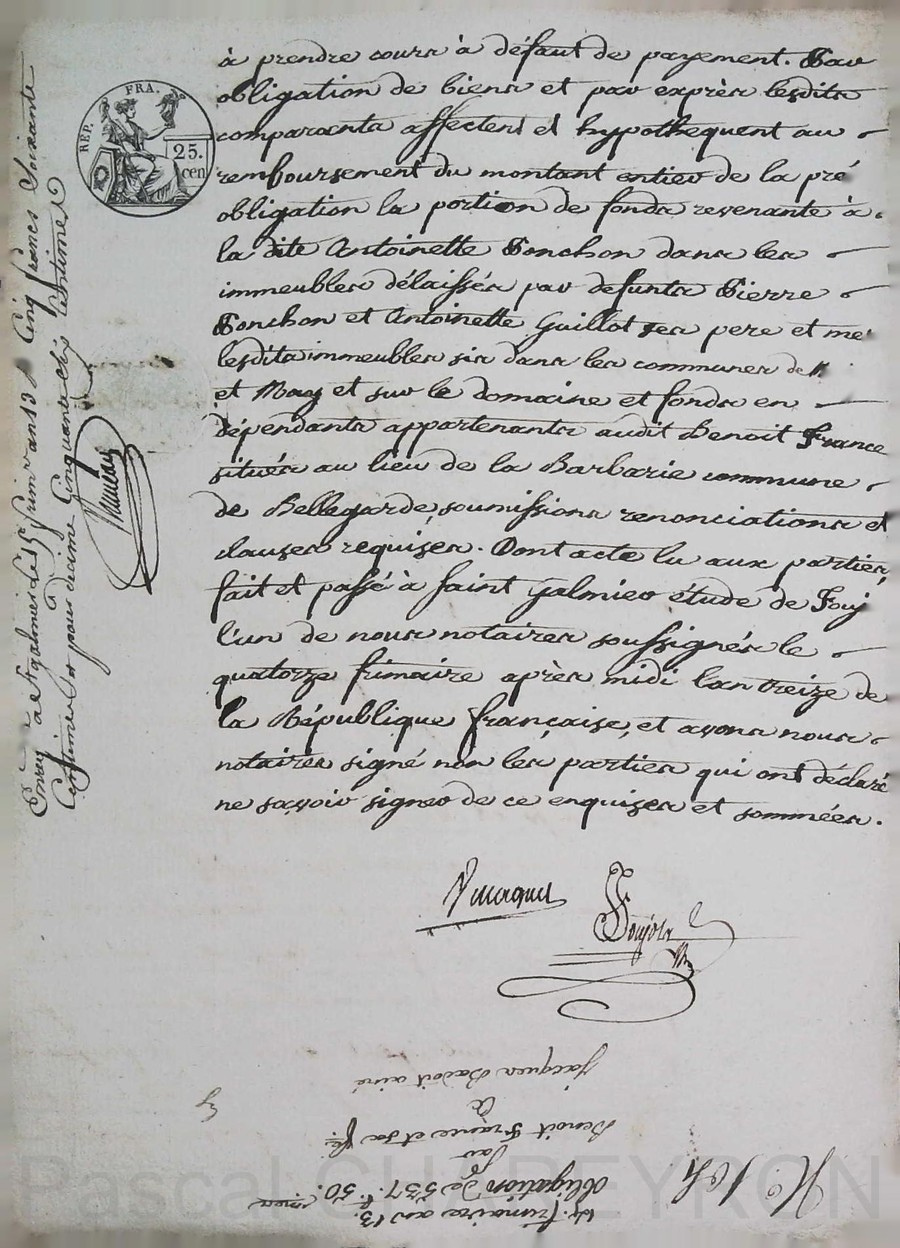 à prendre cours à défaut de payement. Par
obligation de biens et par exprès lesdits
comparants affectent et hypothequent au
remboursement du montant entier de la pré
obligation la portion de fonds revenante à
la dite Antoinette Ponchon dans les
immeubles délaissés par defunts Pierre
Ponchon et Antoinette Guillot ses pere et me
lesdits immeubles sis dans les communes de
et Mag et sur le domaine et fonds en
dépendants appartenants audit Benoit France
situés au lieu de la Barbarie commune
de Bellegarde, soumissions renonciations et
clauses requises. Dont acte lu aux parties,
fait et passé à Saint Galmier étude de Fouj
l'un de nous notaires soussignés le
quatorze frimaire après midi l'an treize de
la République française, et avons nous
notaires signé non les parties qui ont déclaré
ne savoir signer de ce enquises et sommées.
REP. FRA.
25.
cen
à St galmier le 15 frim an 13 Cinq francs Soixante
Centimes pour decime Cinquante Six Centimes
Foujols
N. 104
14. frimaire an 13.
Obligation de 537 f. 50.
Par
Benoit France et sa fe.
à
Jacques Badoit ainé
Pascal CHAPEYRON